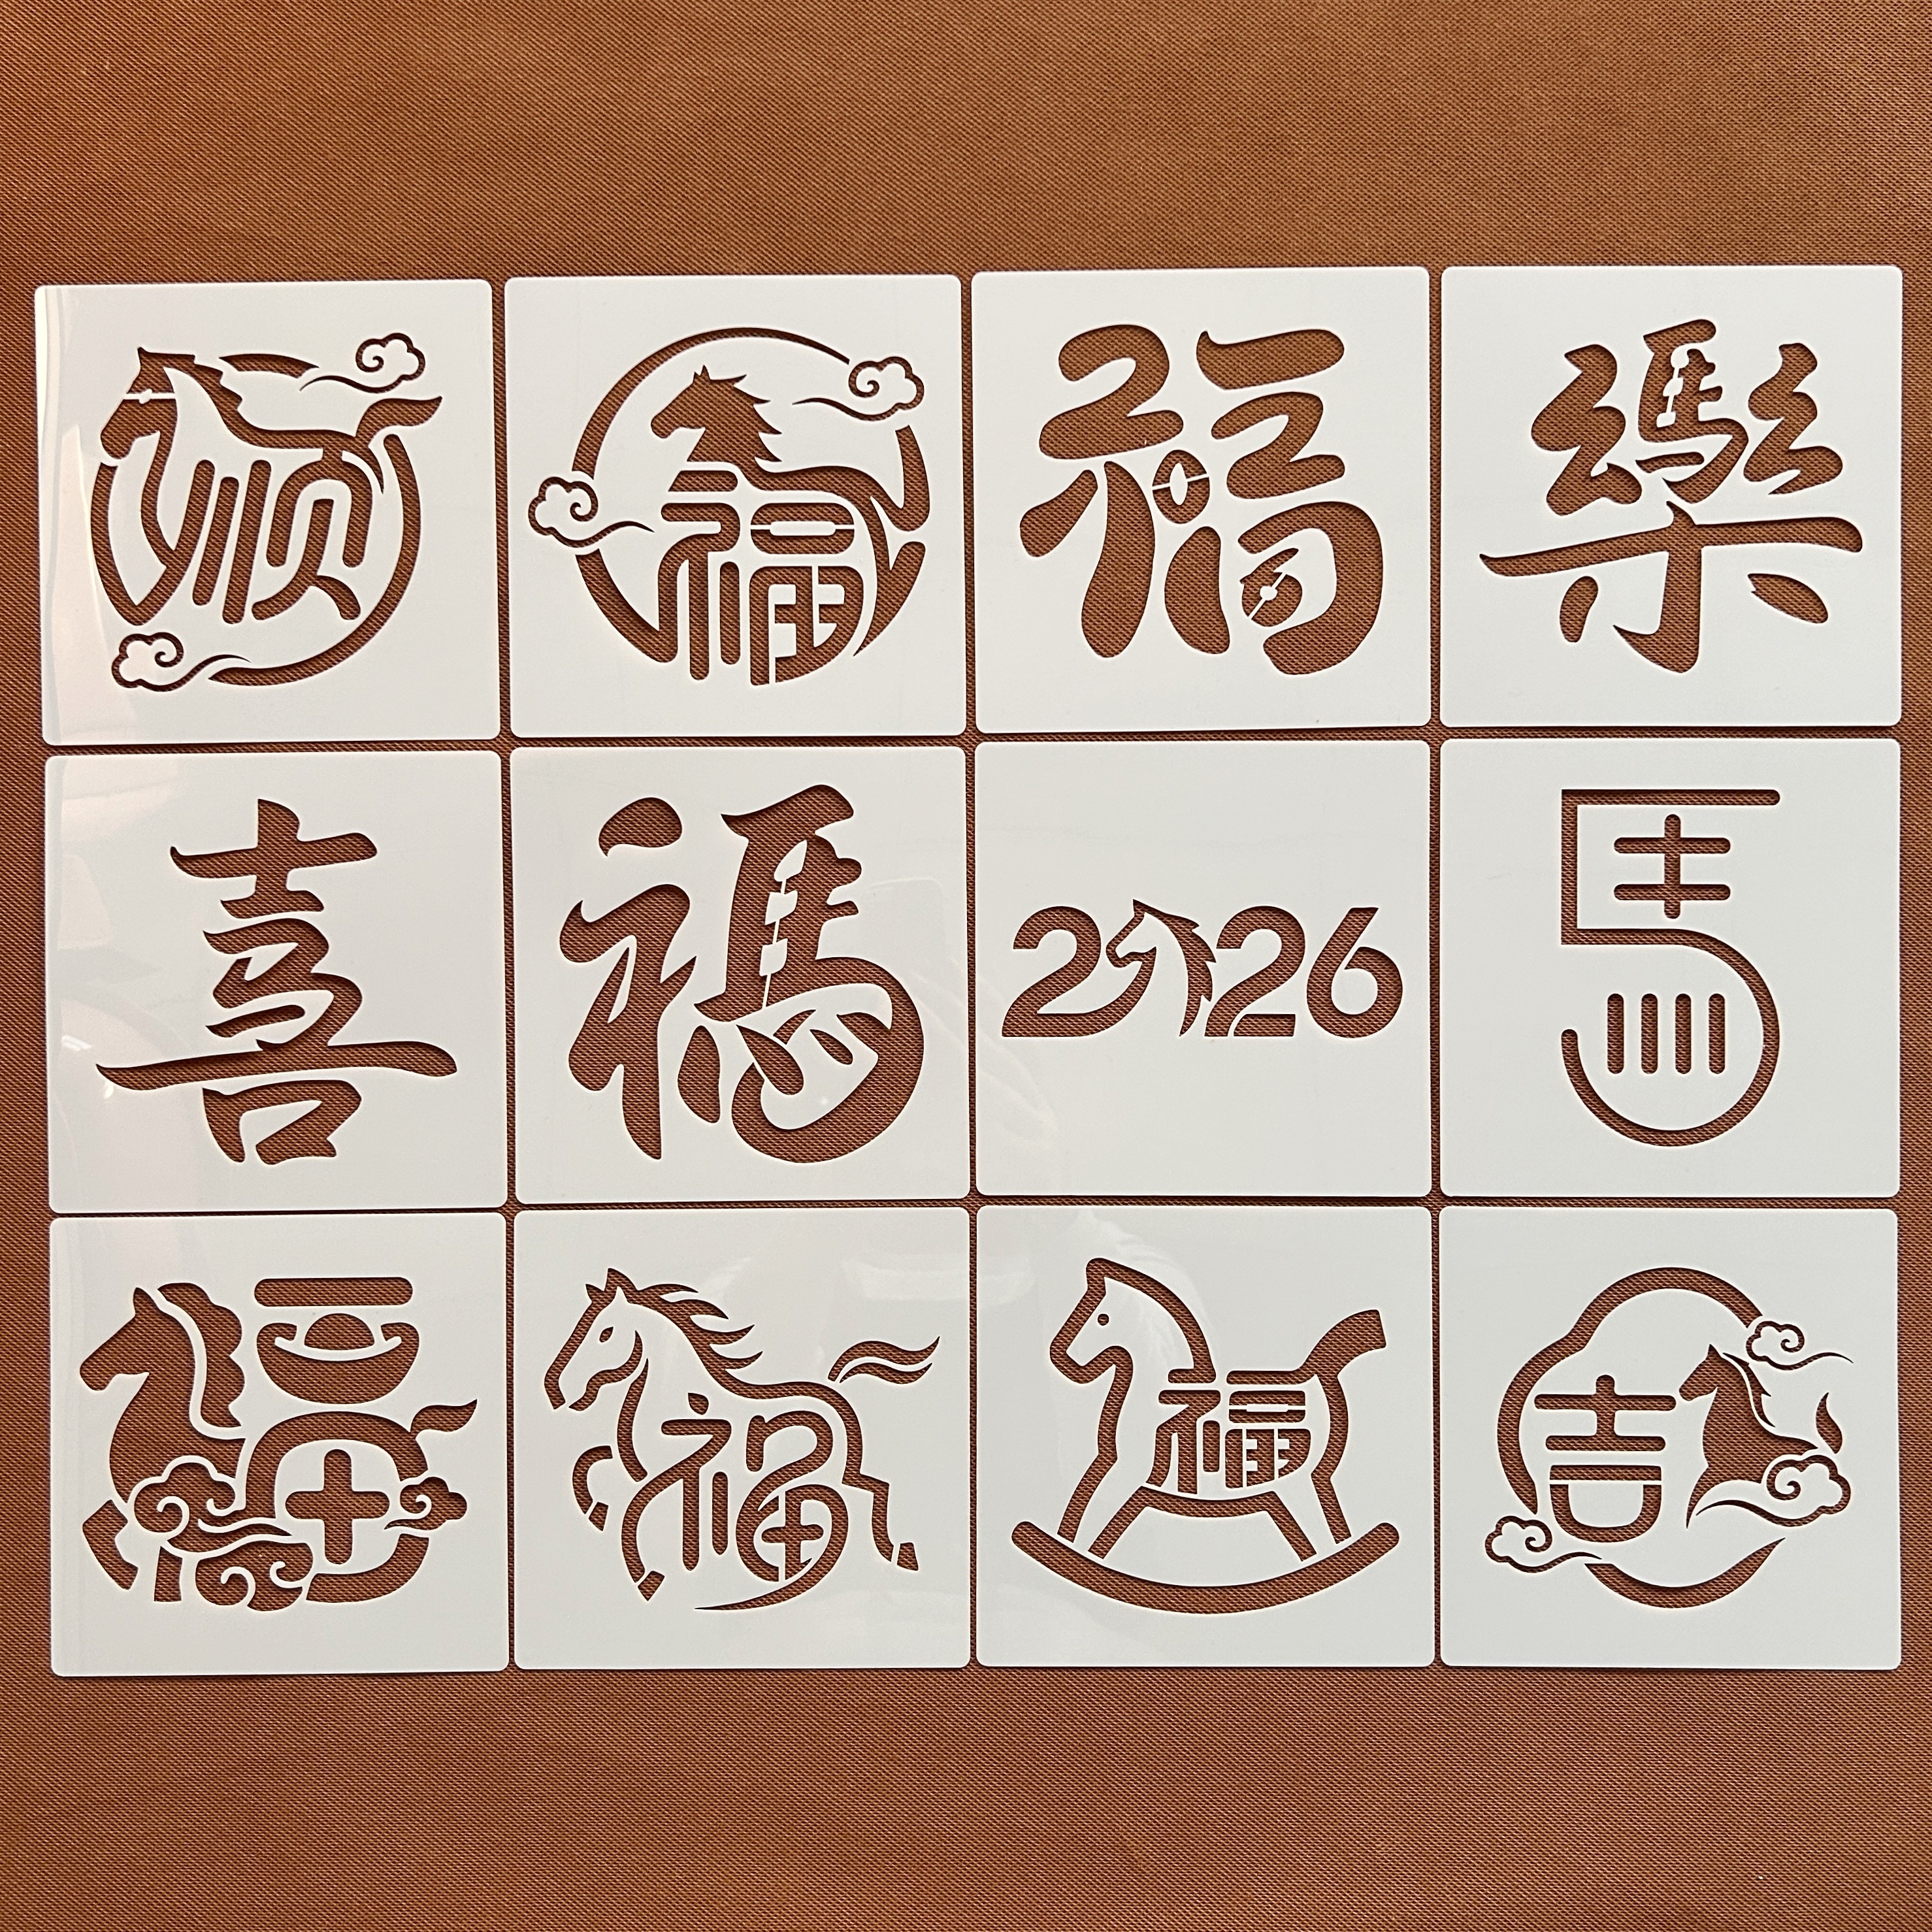 顺 福 福 樂
喜 福 2026 馬
福 福 福 吉